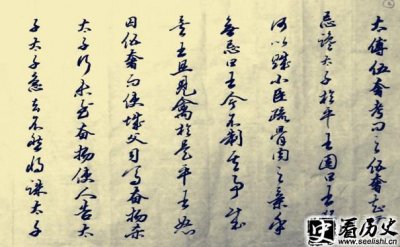 太傅伍奢考問之伍奢知無
忌讒太子於平王因曰王獨
何以賊小臣疏骨肉之親乎
無忌曰王今不制其事成
矣王且見禽於是平王怒
囚伍奢而使城父司馬奮揚
太子行未至奮揚使人告太
子太子急去不然將誅太子
看历史
www.seelishi.com